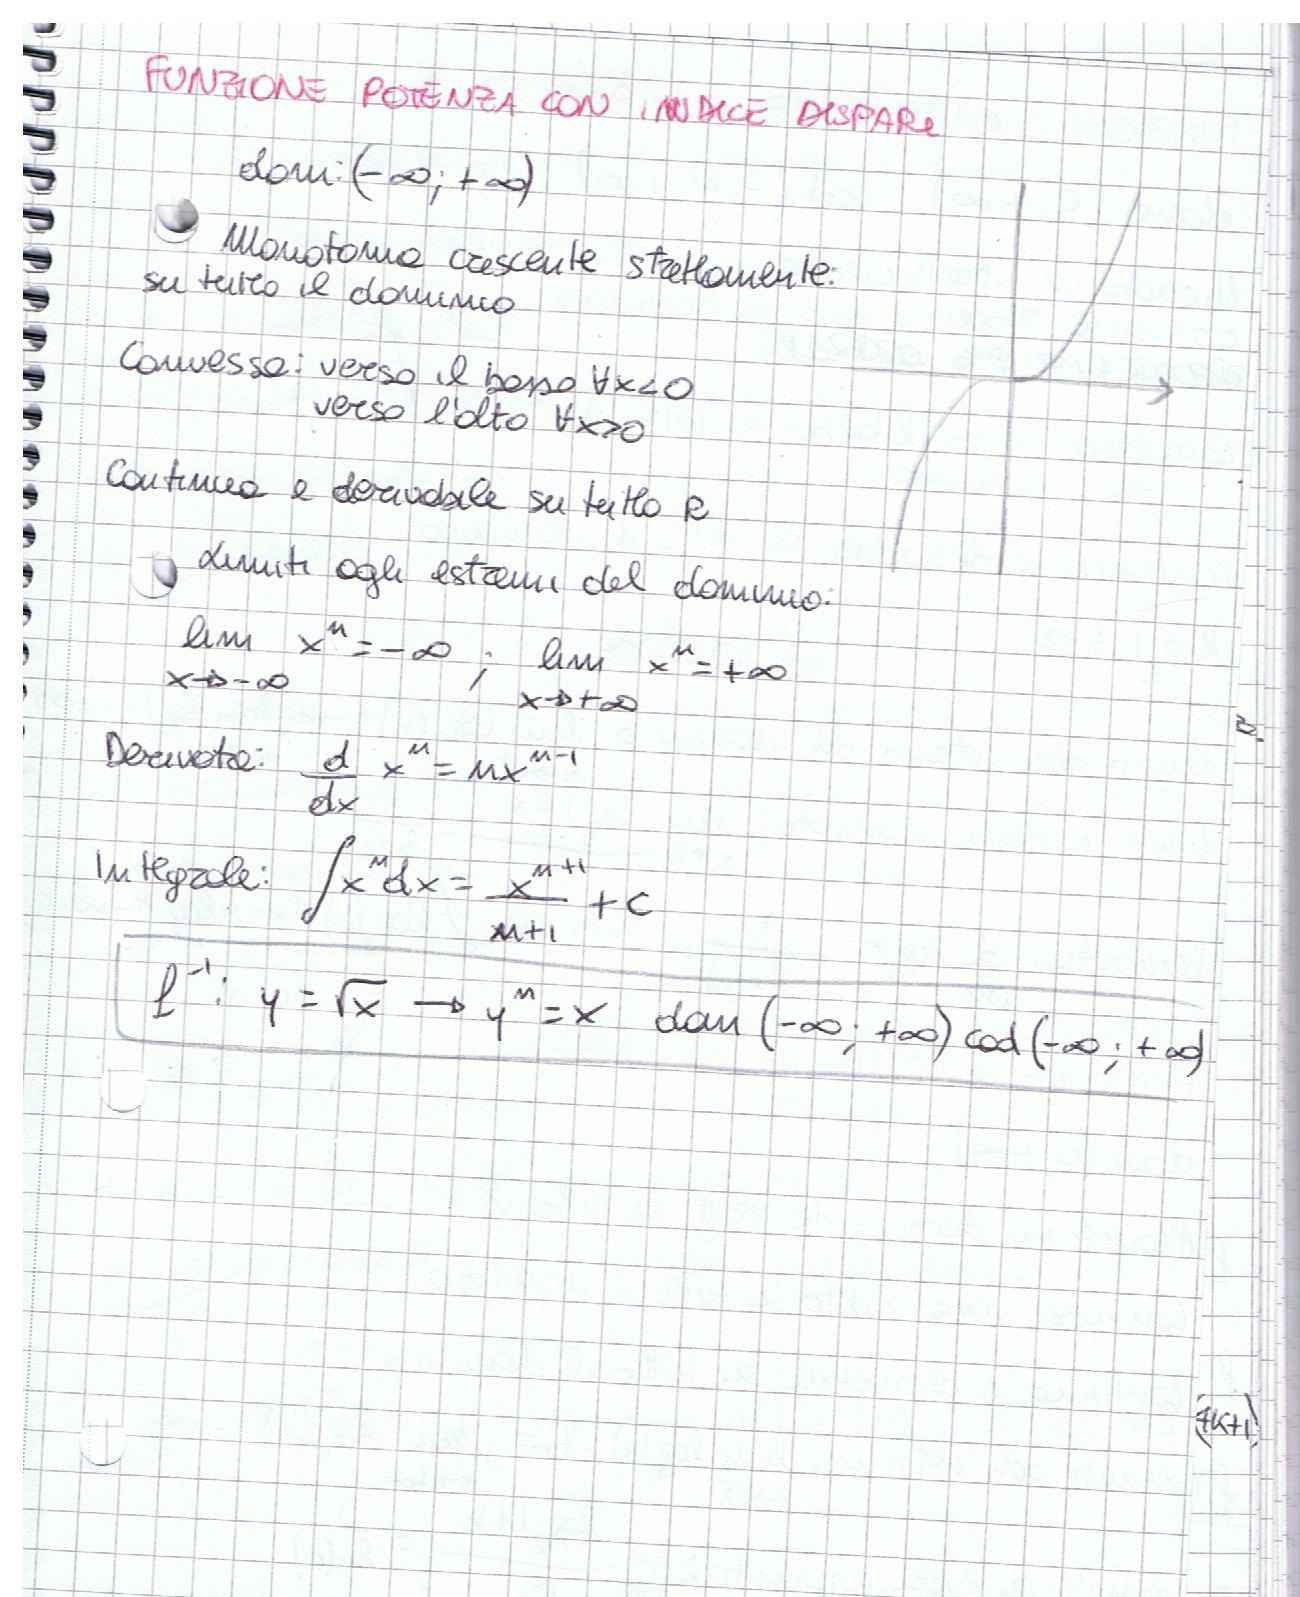 FUNZIONE POTENZA CON INDICE DISPARI
dom: (-∞; +∞)
Monotona crescente strettamente:
su tutto il dominio
Convessa: verso il basso ∀x<0
verso l'alto ∀x>0
Continua e derivabile su tutto R
Limiti agli estremi del dominio:
lim x^n = -∞ ; lim x^n = +∞
x→-∞ x→+∞
Derivata: d/dx x^n = nx^(n-1)
Integrale: ∫x^n dx = x^(n+1)/(n+1) + c
f^-1: y = √x → y^n = x dom (-∞; +∞) cod (-∞; +∞)